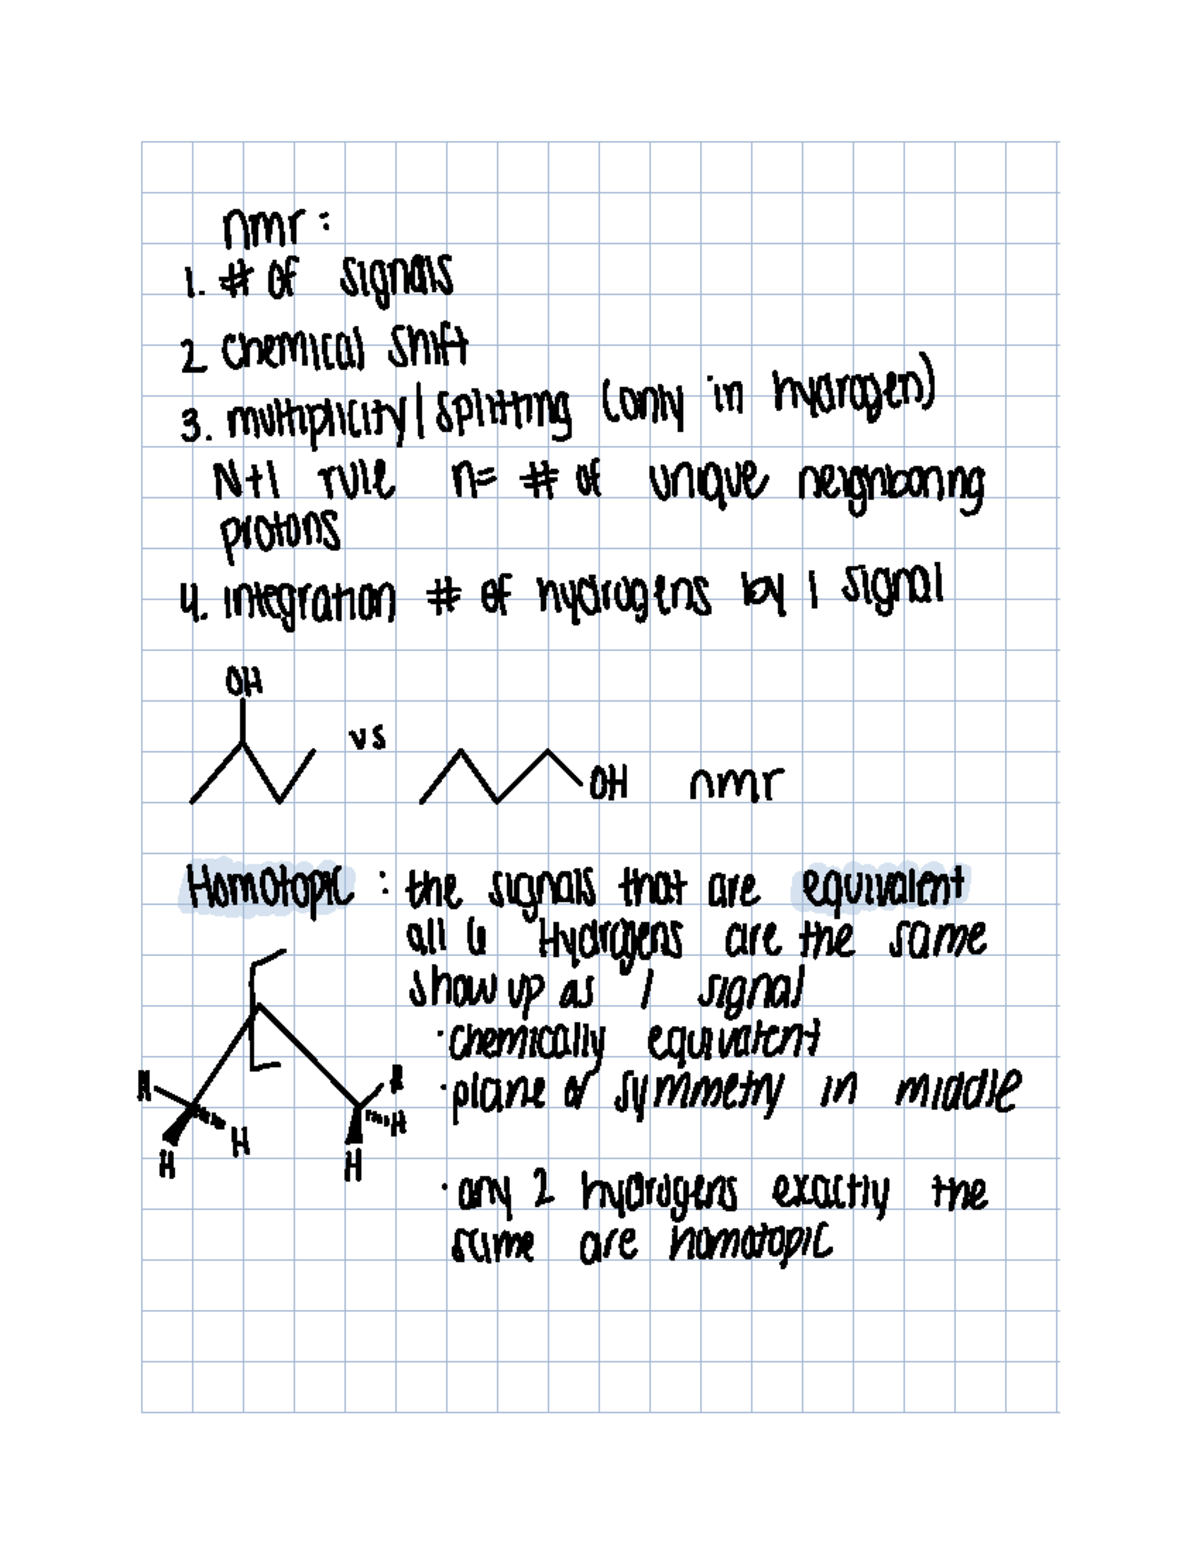 nmr:
1. # of signals
2. chemical shift
3. multiplicity/splitting (only in hydrogen)
N+1 rule n= # of unique neighboring
protons
4. integration # of hydrogens by 1 signal
OH
vs
OH nmr
Homotopic: the signals that are equivalent
all 6 Hydrogens are the same
show up as 1 signal
·chemically equivalent
·plane of symmetry in middle
H
H
H
H
H
·any 2 hydrogens exactly the
same are homotopic